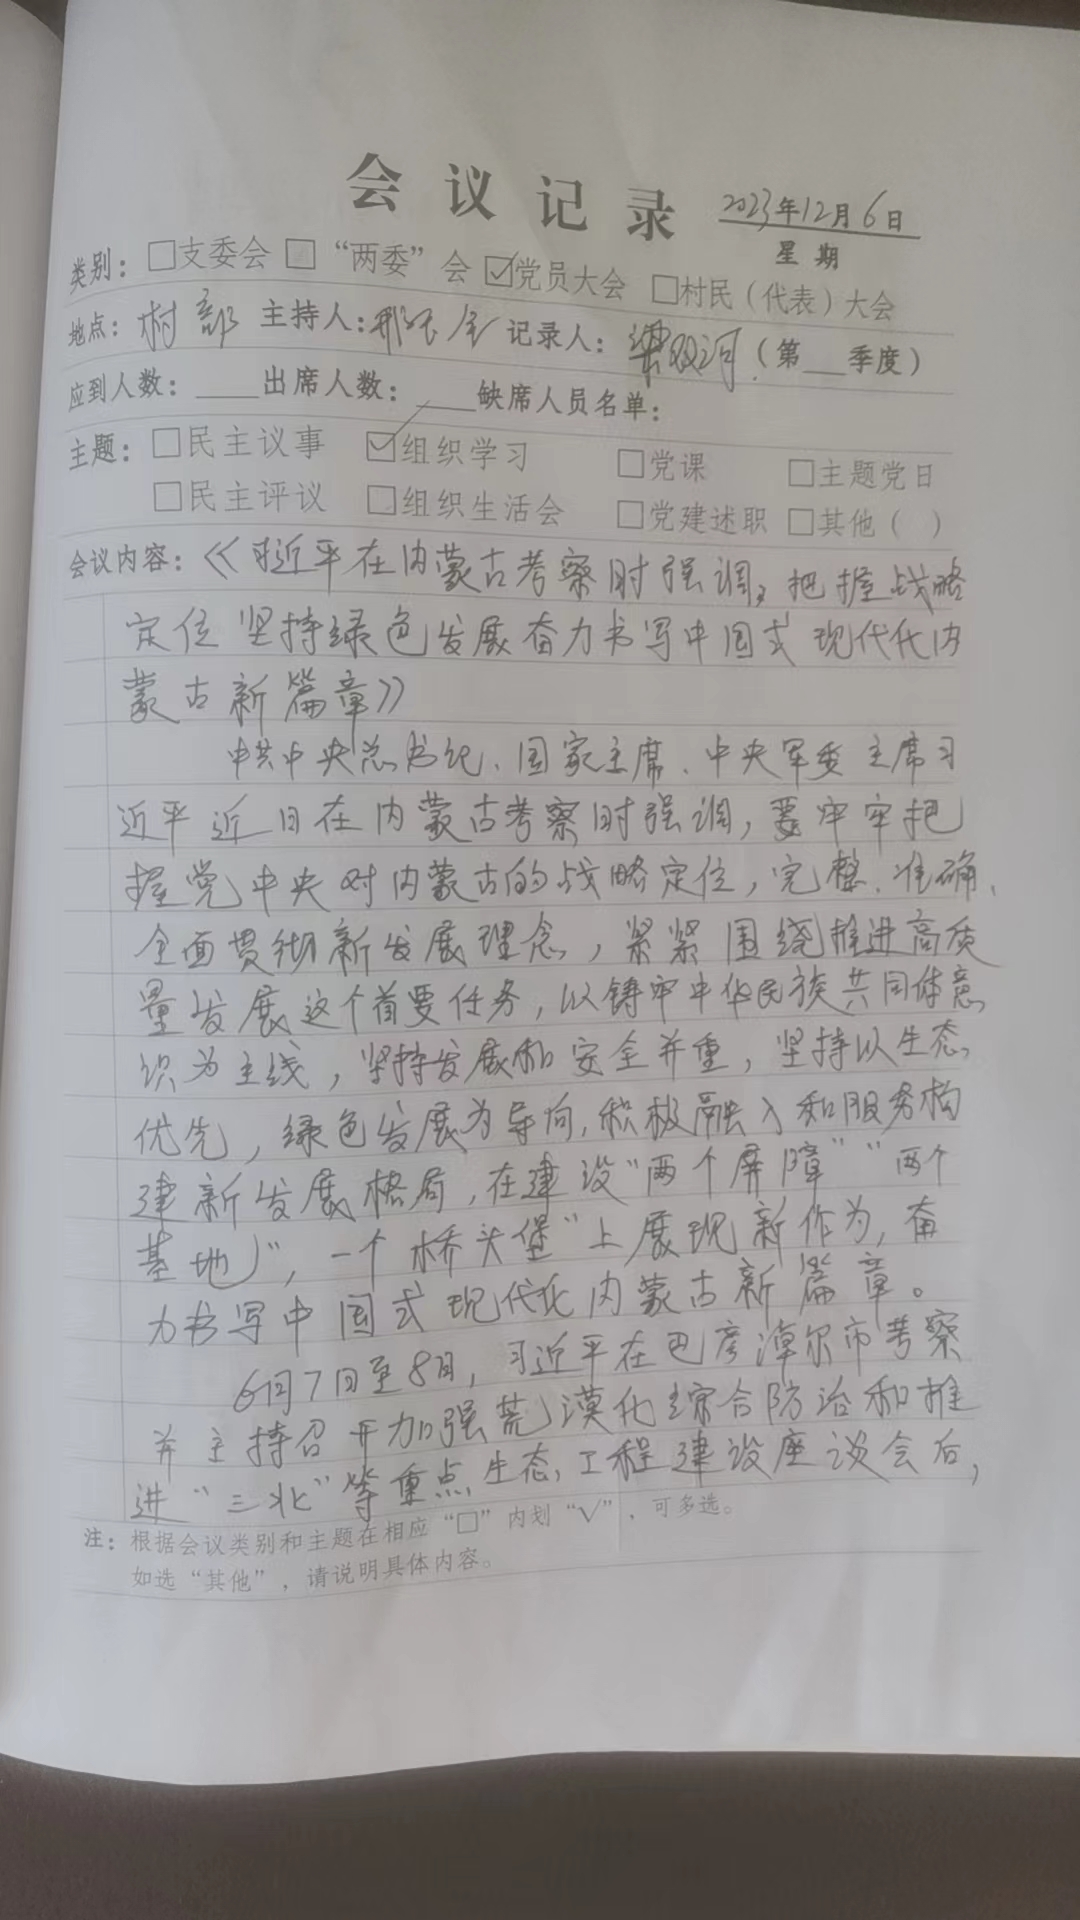 会议记录 2023年12月6日
星期
类别：□支委会 □“两委”会 ☑党员大会 □村民（代表）大会
地点：村部 主持人： 记录人：梁双河（第___季度）
应到人数：____出席人数：____缺席人员名单：
主题：□民主议事 ☑组织学习 □党课 □主题党日
□民主评议 □组织生活会 □党建述职 □其他（ ）
会议内容：《习近平在内蒙古考察时强调，把握战略
定位 坚持绿色发展奋力书写中国式现代化内
蒙古新篇章》
中共中央总书记、国家主席、中央军委主席习
近平近日在内蒙古考察时强调，要牢牢把
握党中央对内蒙古的战略定位，完整、准确、
全面贯彻新发展理念，紧紧围绕推进高质
量发展这个首要任务，以铸牢中华民族共同体意
识为主线，坚持发展和安全并重，坚持以生态
优先，绿色发展为导向，积极融入和服务构
建新发展格局，在建设“两个屏障”“两个
基地”，一个桥头堡”上展现新作为，奋
力书写中国式现代化内蒙古新篇章。
6月7日至8日，习近平在巴彦淖尔市考察
并主持召开加强荒漠化综合防治和推
进“三北”等重点生态工程建设座谈会后，
注：根据会议类别和主题在相应“□”内划“√”，可多选。
如选“其他”，请说明具体内容。